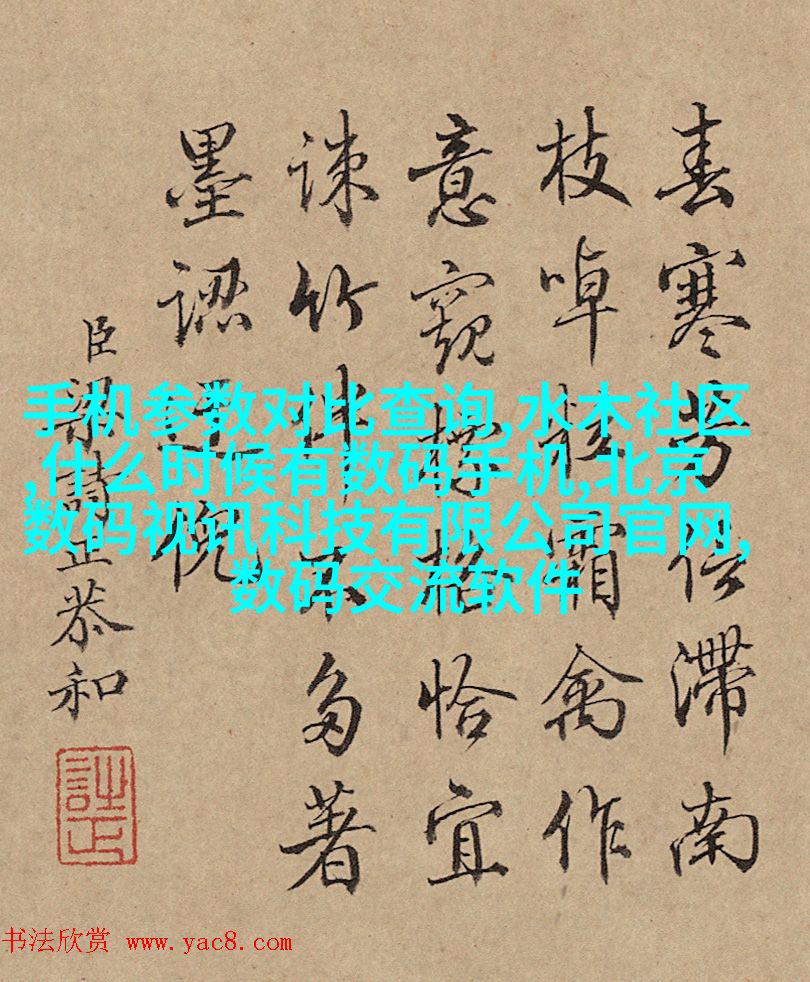 春寒芳信滯南
枝啅霜禽作
意窺格恰宜
疎竹不多著
墨認倪
臣梁詩正恭和
手机参数对比查询,水木社区
,什么时候有数码手机,北京
数码视讯科技有限公司官网,
数码交流软件
书法欣赏 www.yac8.com